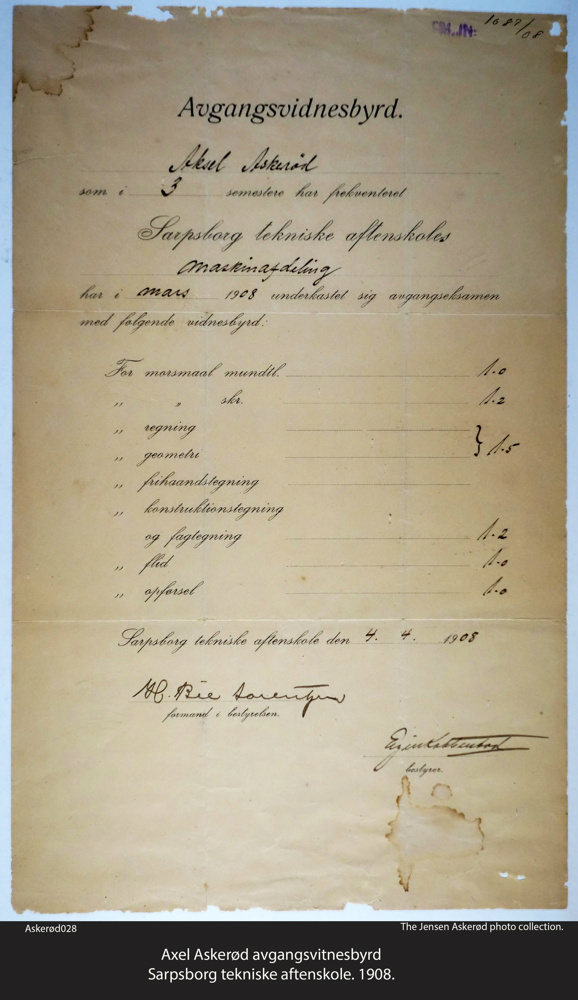 1687/08
Avgangsvidnesbyrd.
Aksel Askerød
som i 3 semestere har frekventeret
Sarpsborg tekniske aftenskoles
maskinafdeling
har i mars 1908 underkastet sig avgangseksamen
med følgende vidnesbyrd:
For morsmaal mundtl. 1.0
„ „ skr. 1.2
„ regning
„ geometri } 1.5
„ frihaandstegning
„ konstruktionstegning
og fagtegning 1.2
„ flid 1.0
„ opførsel 1.0
Sarpsborg tekniske aftenskole den 4. 4. 1908
H. Bie Lorentzen
formand i bestyrelsen.
bestyrer.
Askerød028
The Jensen Askerød photo collection.
Axel Askerød avgangsvitnesbyrd
Sarpsborg tekniske aftenskole. 1908.